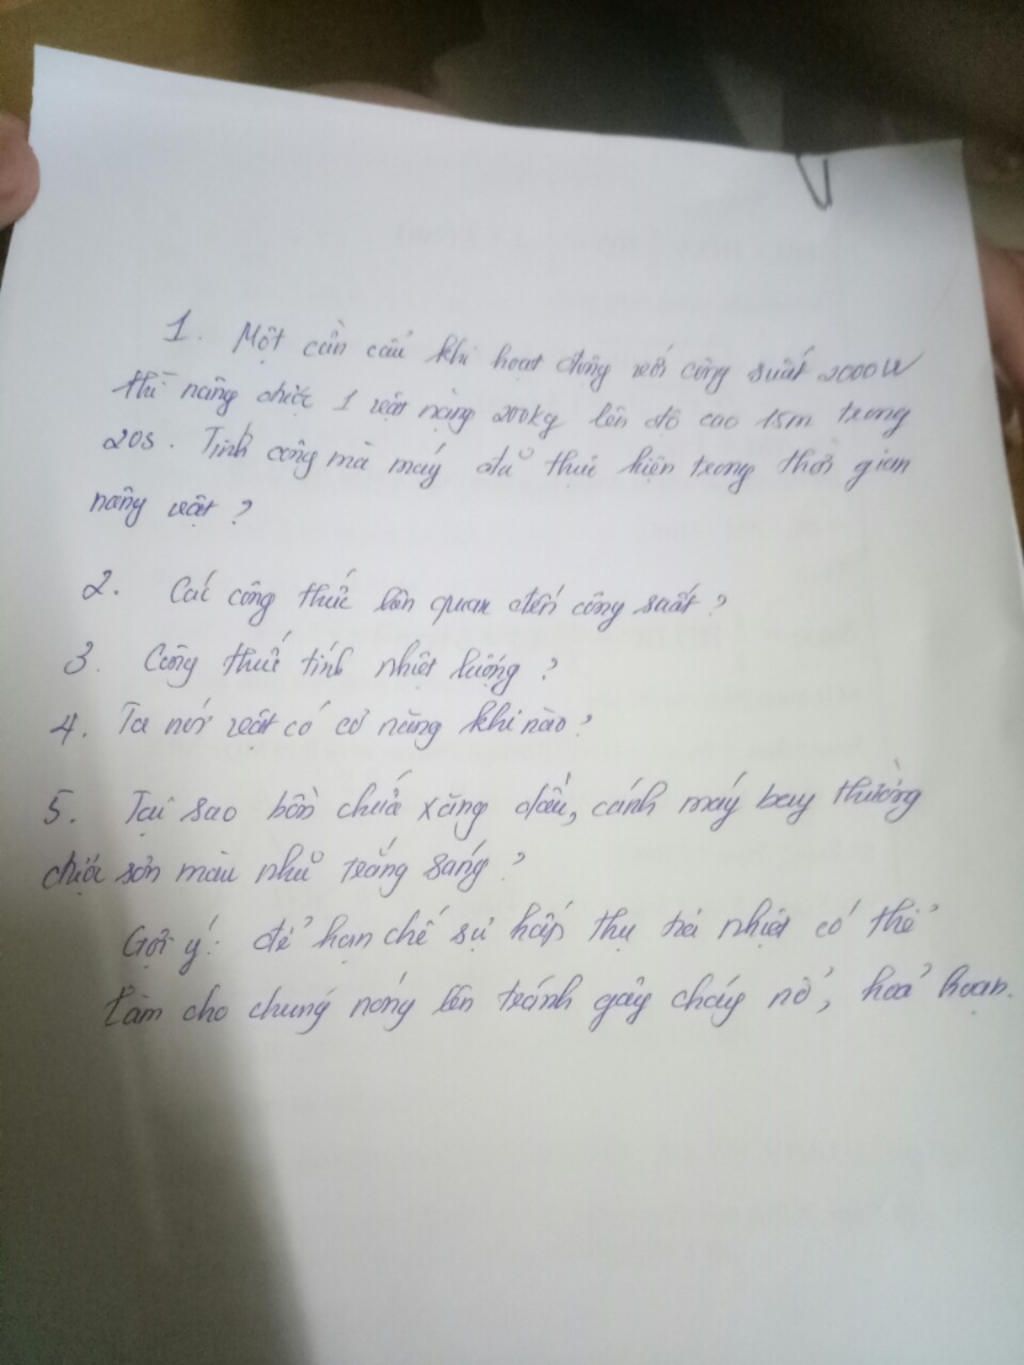 1. Một cần cẩu khi hoạt động với công suất 2000W
thì nâng được 1 vật nặng 200kg lên độ cao 15m trong
20s. Tính công mà máy đã thực hiện trong thời gian
nâng vật ?
2. Các công thức liên quan đến công suất ?
3. Công thức tính nhiệt lượng ?
4. Ta nói vật có cơ năng khi nào ?
5. Tại sao bồn chứa xăng dầu, cánh máy bay thường
được sơn màu nhũ trắng sáng ?
Gợi ý: để hạn chế sự hấp thụ tia nhiệt có thể
làm cho chúng nóng lên tránh gây cháy nổ, hoả hoạn.